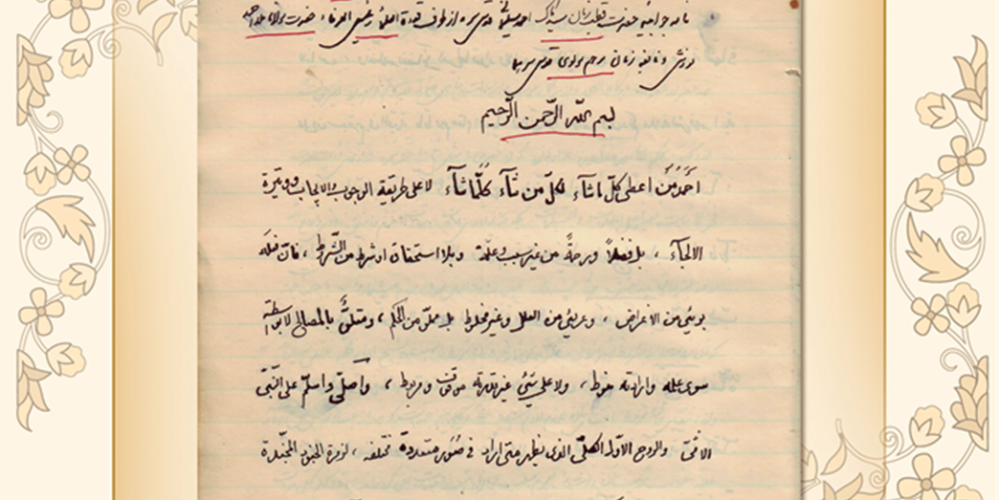 نامه جوابیه حضرت قطب زمان سید تاک احمد سلیمانی قدس سره از طرف قدوة العلماء رئیس العرفاء حضرت مولانا خالد
و نابغه زمان مرحوم مولوی قدس سرهما
بسم الله الرحمن الرحیم
أحمدُ مَن أعطی کلّ ما شآء لکلّ من شآء کُلّما شآء لا علی طریقة الوجوب والایجاب و وتیرة
الالجآء ، بل فضلاً و رحمةً من غیر سبب و علّة و بلا استحقاق او شرط من الشّروط ، فان فعله
بریئ من الاغراض ، و عریئ من العلل و غیر مخلوط بل مملوّ من الحِکم ، ومتلقٌّ بالمصالح لا بواسطة
سوی علمه وارادته منوط ، ولا علی شیئ غیر قدرته موقوف و مربوط ، وأصلّی واسلّم علی النّبیّ
الامّیّ والروح الاوّل الکلیّ الذی یظهر متی اراد فی صُوَر متعددة مختلفه ، لزمرة الجنود المجنّدة